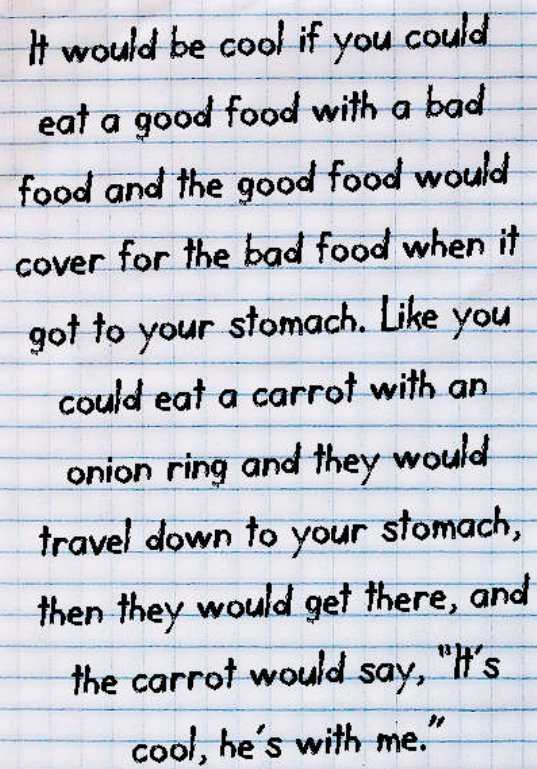 It would be cool if you could
eat a good food with a bad
food and the good food would
cover for the bad food when it
got to your stomach. Like you
could eat a carrot with an
onion ring and they would
travel down to your stomach,
then they would get there, and
the carrot would say, "It's
cool, he's with me."